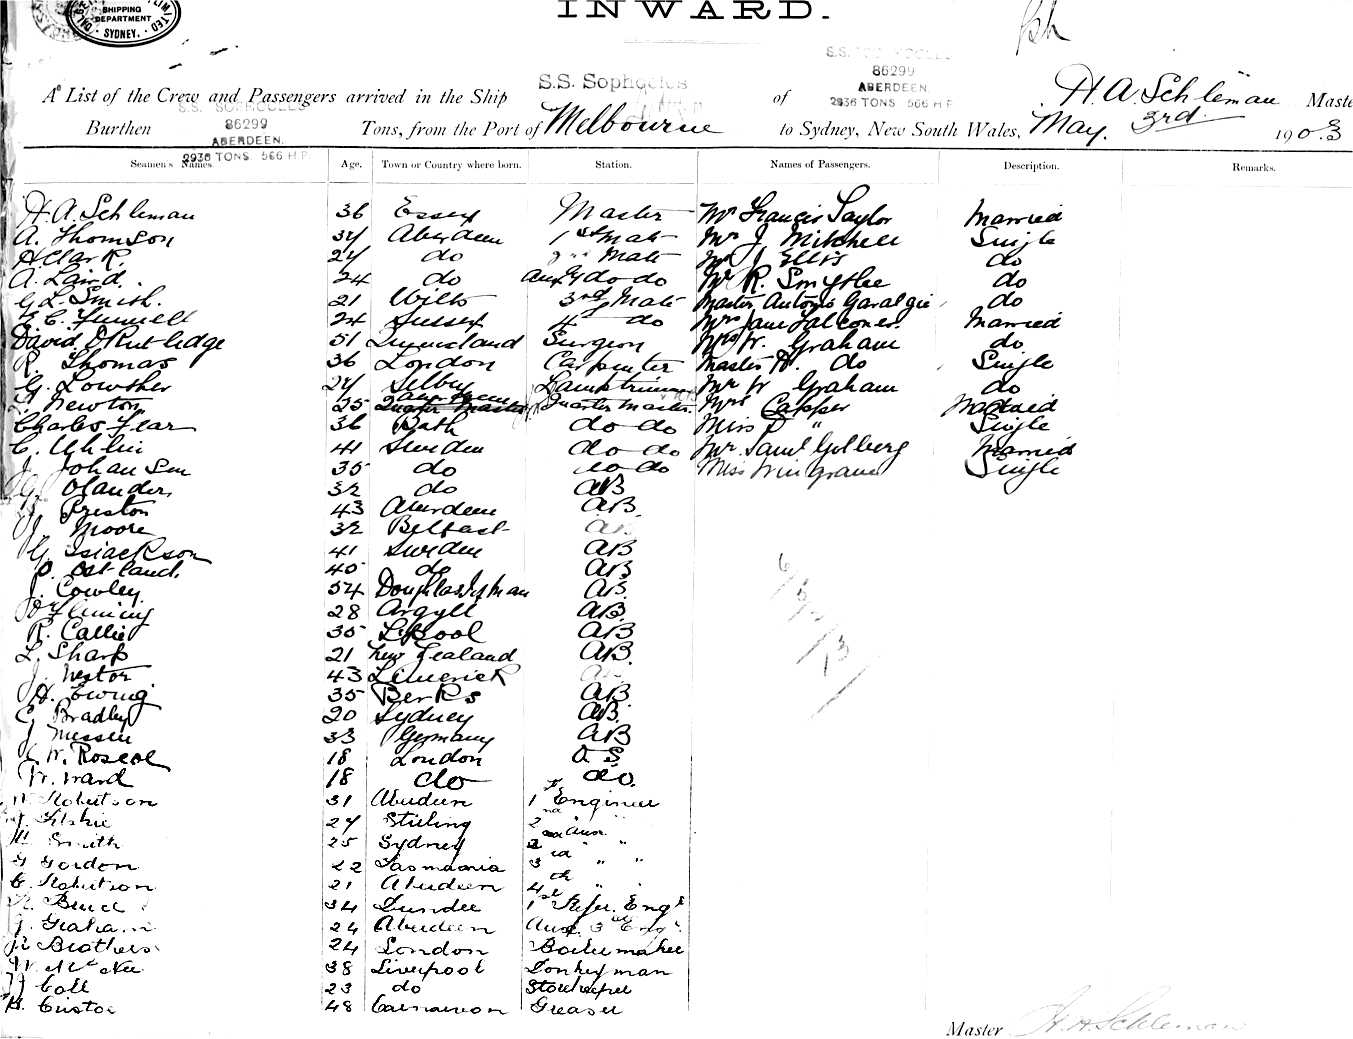 SHIPPING
DEPARTMENT
SYDNEY.
INWARD.
S.S. Sophocles
86299
ABERDEEN
2936 TONS 566 H.P.
A List of the Crew and Passengers arrived in the Ship S.S. Sophocles of H. A. Schleman Maste
Burthen 86299 ABERDEEN. 2936 TONS. 566 H.P. Tons, from the Port of Melbourne to Sydney, New South Wales, May. 3rd. 1903
Seamen's Names. Age. Town or Country where born. Station. Names of Passengers. Description. Remarks.
H. A. Schleman 36 Essex Master Mr Francis Taylor Married
A. Thomson 34 Aberdeen 1st Mate Mr J. Mitchell Single
A Clark. 24 do 2nd Mate Mr J Ellis do
A. Laird. 24 do Aux 2 do do Mr R. Smythe do
G. L. Smith. 21 Wilts 3rd Mate Master Antonio Garalgie do
24 Sussex 4 do Mrs Jane Falconer. Married
David D Rutledge 51 Queensland Surgeon Mrs W. Graham do
R. Thomas 36 London Carpenter Master H. do Single
G. Lowther 24 Selby Lamptrimmer Mr W Graham do
Newton 25 Quarter Master. Mrs Capper Married
Charles Fear 36 Bath do do Miss D " Single
C. Uhlin 41 Sweden do do Mr Saml Golberg Married
J. Johansen 35 do do do Miss Wingrave Single
G. Olander, 32 do AB
Preston 43 Aberdeen AB.
J. Moore 32 Belfast AB
G. Isiackson 41 Sweden AB
O. Ostland. 40 do AB
J. Cowley. 54 Douglas I of Man AB.
Fleming 28 Argyll AB.
R. Callie 35 L'Pool AB
L. Sharp 21 New Zealand AB.
J. Nestor 43 Limerick AB
H. Ewing. 35 Berks AB.
C. Bradley 20 Sydney AB.
J Nissen 33 Germany AB
W. Roscoe 18 London O.S.
W. Ward 18 do do.
Robertson 31 Aberdeen 1st Engineer
24 Stirling 2nd "
Smith 25 Sydney 2nd Aux " "
G Gordon 22 Tasmania 3rd " "
C. Robertson 21 Aberdeen 4th " "
Bruce 34 Dundee 1st Refr. Engr
J. Graham 24 Aberdeen Aux. 3rd Engr.
Brothers 24 London Boilermaker
W. McNee 38 Liverpool Donkeyman
J Cole 23 do Storekeeper
48 Carnarvon Greaser
Master H. A. Schleman